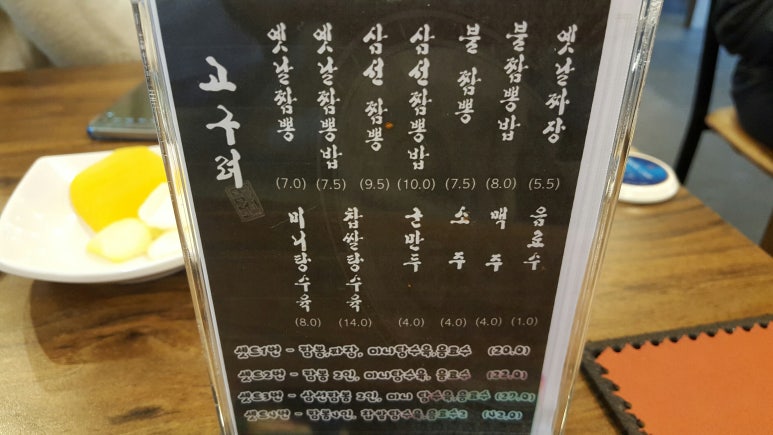 고구려
옛날짬뽕 (7.0)
옛날짬뽕밥 (7.5)
삼선 짬뽕 (9.5)
삼선짬뽕밥 (10.0)
불 짬뽕 (7.5)
불짬뽕밥 (8.0)
옛날짜장 (5.5)
미니탕수육 (8.0)
찹쌀탕수육 (14.0)
군만두 (4.0)
소주 (4.0)
맥주 (4.0)
음료수 (1.0)
셋트1번 - 짬뽕,짜장, 미니탕수육,음료수 (20.0)
셋트2번 - 짬뽕 2인, 미니탕수육, 음료수 (22.0)
셋트3번 - 삼선짬뽕 2인, 미니 탕수육,음료수 (27.0)
셋트4번 - 짬뽕4인, 찹쌀탕수육,음료수2 (42.0)